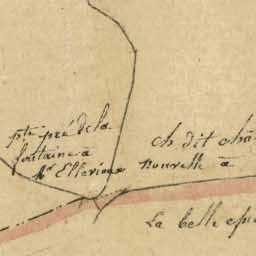 pte pré de la
fontaine à
Mr Ellevioux
ch. dit châ
nouvelle à
La belle